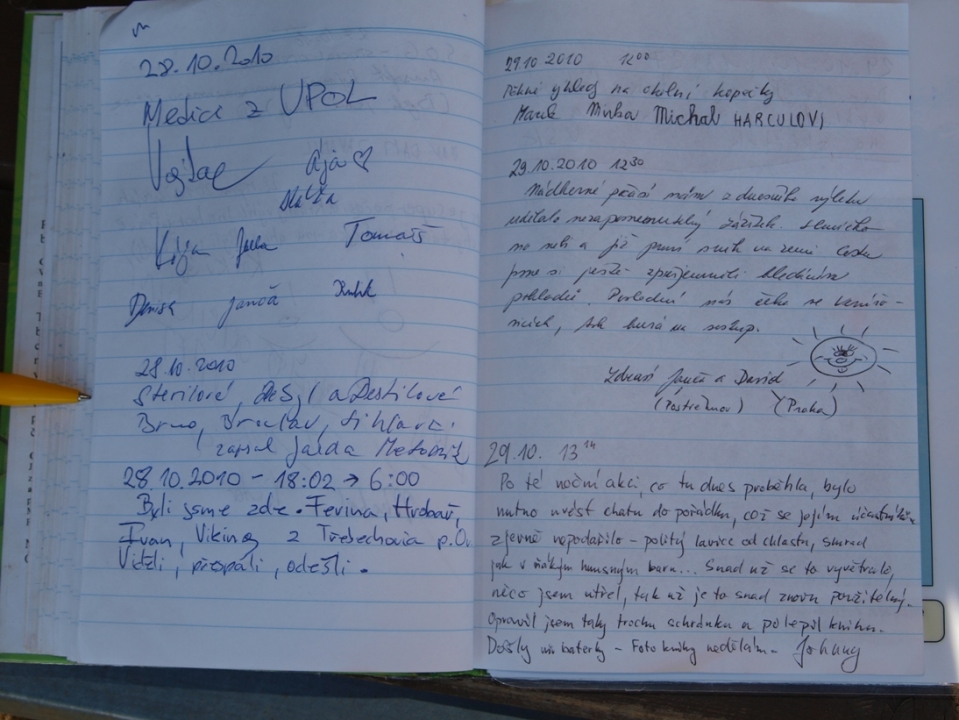 28.10.2010
Medici z UPOL
Vojtae
Ája
Tomáš
Denisa Janča
28.10.2010
Sterilové, a Destilové
Brno, Břeclav, Jihlava.
zapsal Jarda
28.10.2010 - 18:02 → 6:00
Byli jsme zde. Ferina, Hrobař,
Ivan, Viking z Třebechovic p.O.
Viděli, přespali, odešli.
29.10 2010 12⁰⁰
Pěkné výhledy na okolní kopečky
Marek Mirka Michal HARCULOVI
29.10.2010 12³⁰
Nádherné počasí nám z dnešního výletu
udělalo nezapomenutelný zážitek. Sluníčko
na nebi a již první sníh na zemi. Cestu
jsme si ještě zpříjemnili hledáním
pokladů. Poslední nás čeka ve
, tak hurá na sestup.
Zdraví Janča a David
(Postřelmov) (Praha)
29.10. 13¹⁴
Po té noční akci, co tu dnes proběhla, bylo
nutno uvést chatu do pořádku, což se jejím účastníkům
zjevně nepodařilo - polité lavice od chlastu, smrad
jak v ňákým hnusným baru... Snad už se to vyvětralo,
něco jsem utřel, tak už je to snad znovu použitelný.
Opravil jsem taky trochu schránku a polepil knihu.
Došly mi baterky - Foto knihy nedělám. Johnny